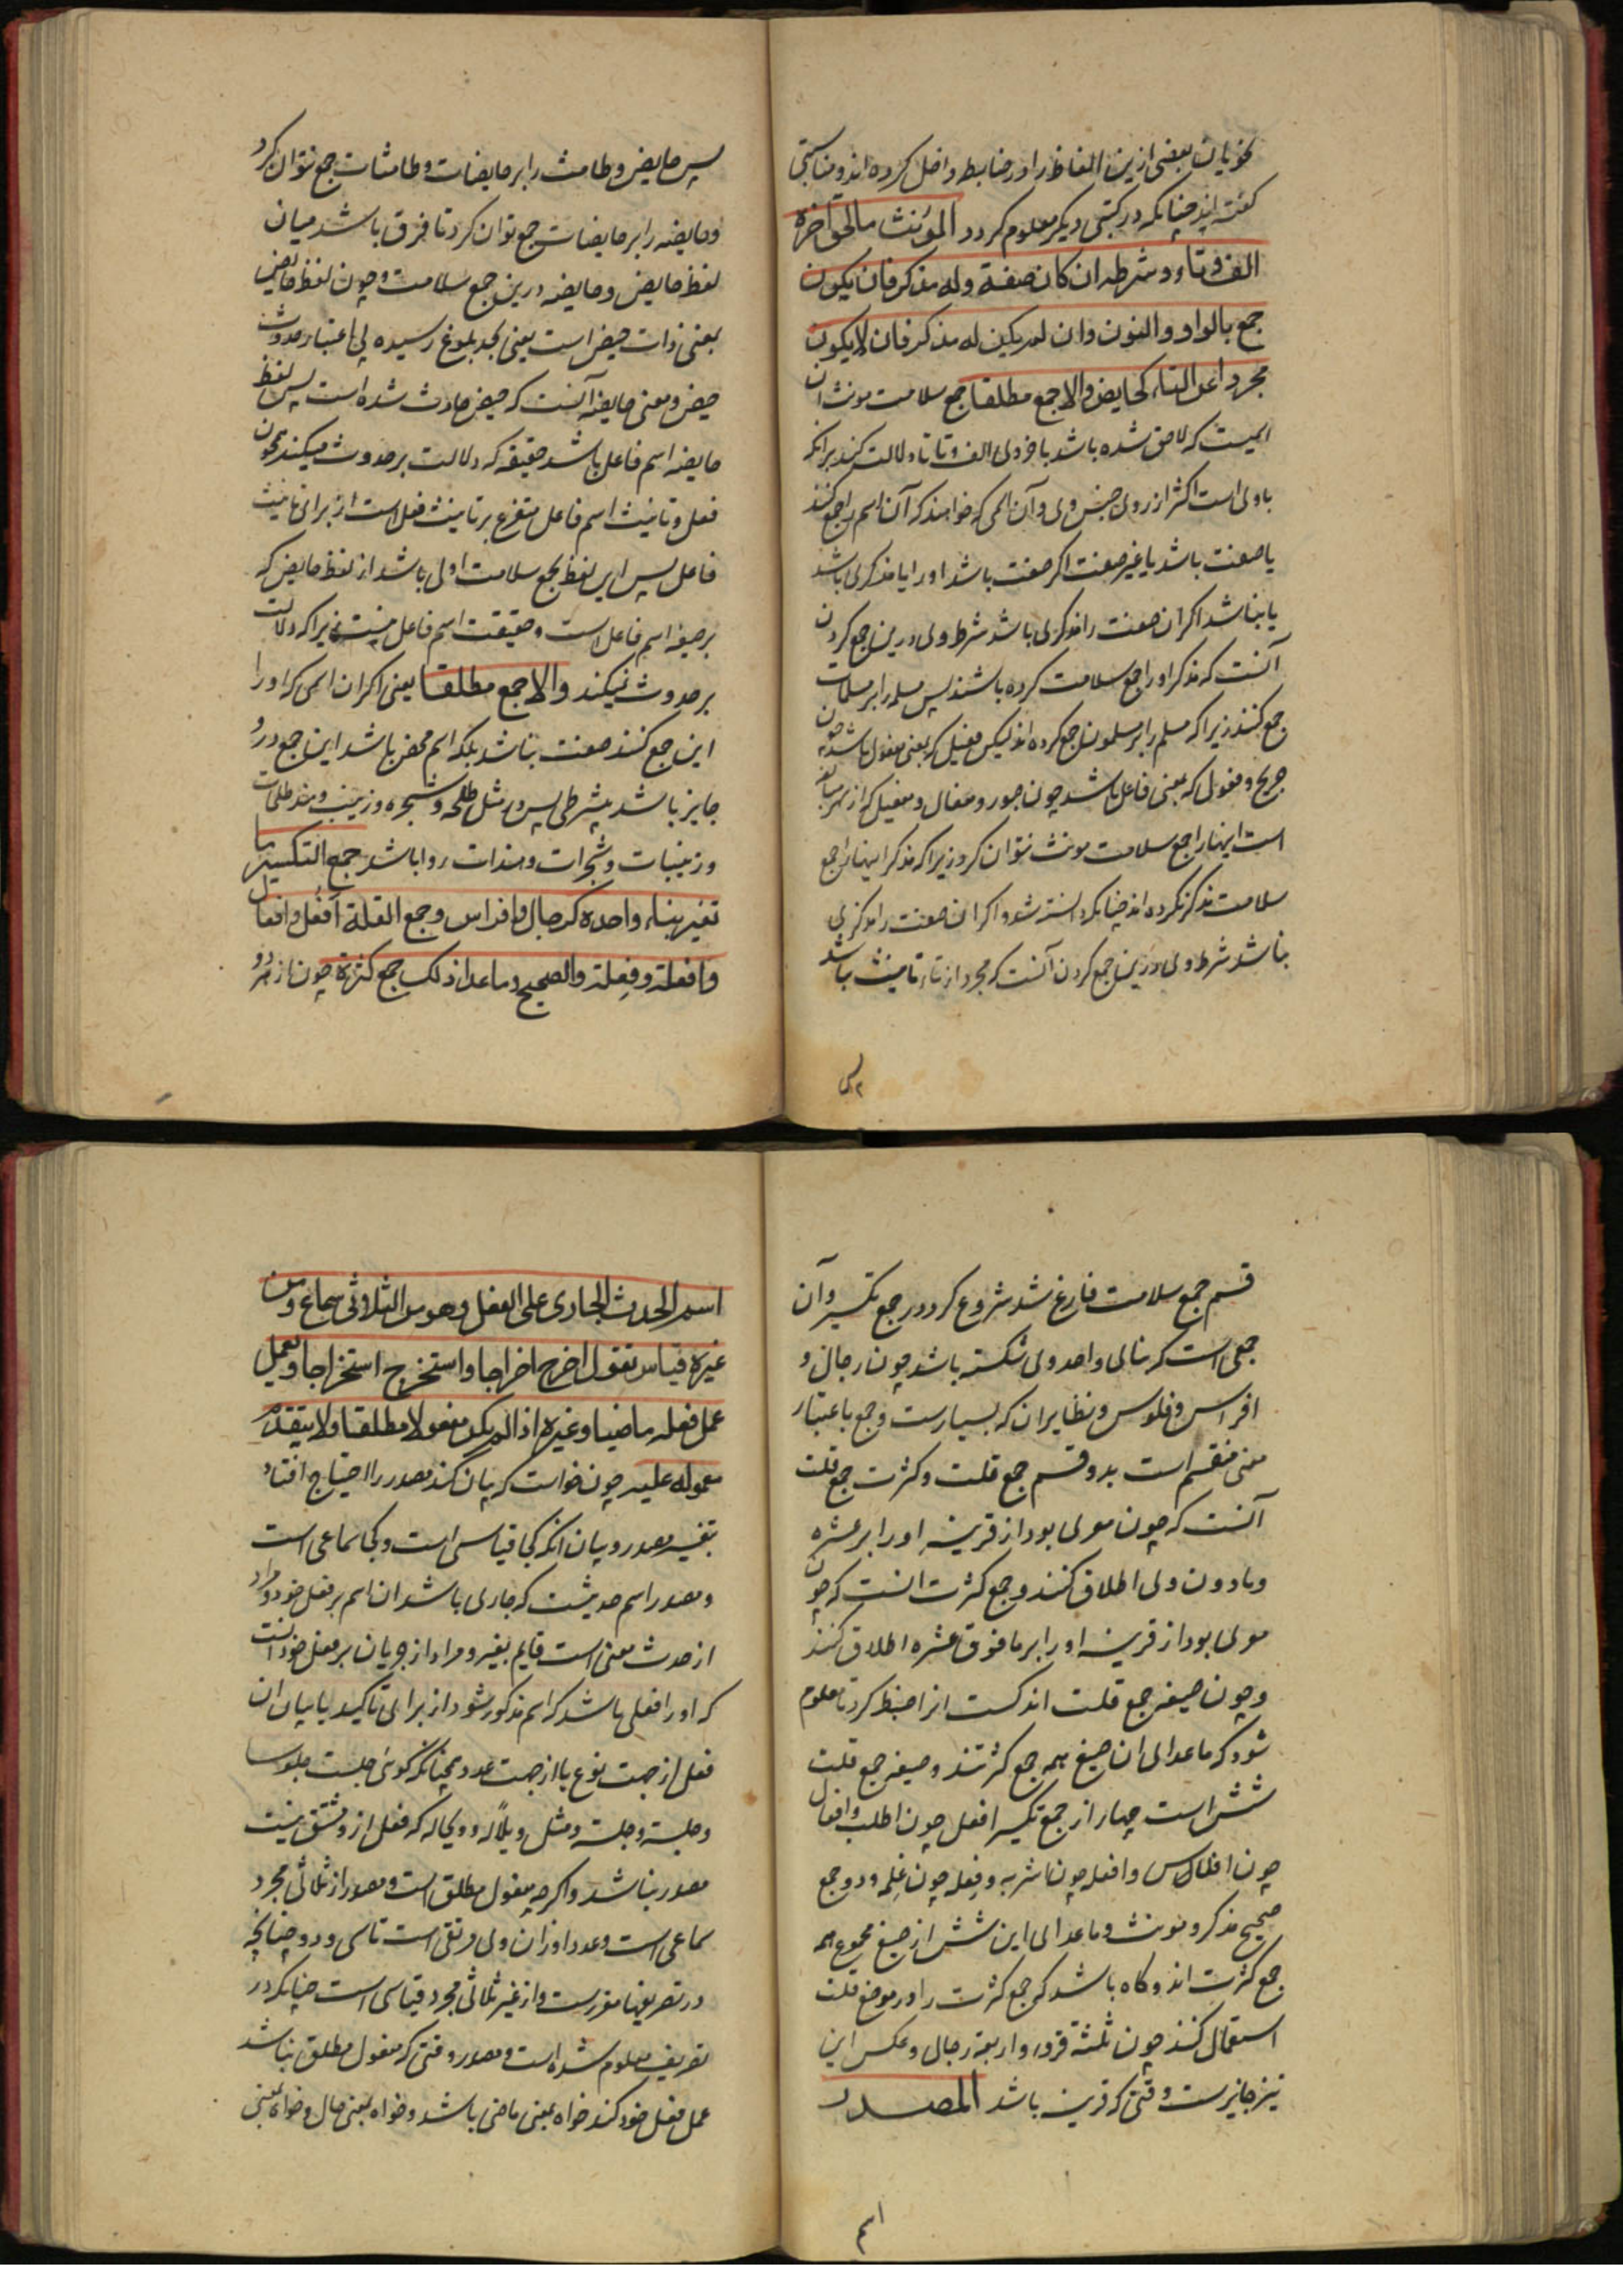 نحویان بعضی ازین الفاظ را در ضابطه داخل کرده اند و مناسبتی
گفته اند چنانکه در کتبی دیگر معلوم کردد المؤنث مالحق آخره
الف و تاء و شرطه ان کان صفة وله مذکر فان یکون
جمع بالواو والنون وان لم یکن له مذکر فان لا یکون
مجردا عن التاء کحایض والا جمع مطلقا جمع سلامت مونث آن
اسمیست که لاحق شده باشد باخر وی الف و تا تا دلالت کند برانکه
باوی است اکثر از وی جنس وی و آن اسمی که خواهند که آن اسم را جمع کنند
یا صفت باشد یا غیر صفت اکر صفت باشد او را یا مذکری باشد
یا نباشد اکر ان صفت را مذکری باشد شرط وی درین جمع کردن
آنست که مذکر او را جمع سلامت کرده باشند پس مسلمه را بر مسلمات
جمع کنند زیرا که مسلم را بر مسلمون جمع کرده اند لیکن فعیل که بمعنی مفعول باشد چون
جریح و فعولی که بمعنی فاعل باشد چون صبور و مفعال و مفعیل که از بهر مبالغه
است اینها را جمع سلامت مونث نتوان کرد زیرا که مذکر اینها را جمع
سلامت مذکر نکرده اند چنانکه دانسته شد و اکر ان صفت را مذکری
نباشد شرط وی درین جمع کردن آنست که مجرد از تاء تانیث نباشد
پس
پس حایض و طامث را بر حایضات و طامثات جمع نتوان کرد
و حایضه را بر حایضات جمع توان کرد تا فرق باشد میان
لفظ حایض و حایضه درین جمع سلامت و چون لفظ حایض
بمعنی ذات حیض است یعنی بحد بلوغ رسیده بی اعتبار حدوث
حیض و معنی حایضه آنست که حیض حادث شده است پس لفظ
حایضه اسم فاعل باشد حقیقه که دلالت بر حدوث میکند همچون
فعل و تانیث اسم فاعل متفرع بر تانیث فعل است از برای تانیث
فاعل پس این لفظ بجمع سلامت اولی باشد از لفظ حایض که
بر صیغه اسم فاعل است و حقیقت اسم فاعل نیست زیرا که دلالت
بر حدوث نمیکند والا جمع مطلقا یعنی اکر ان اسمی که او را
این جمع کنند صفت نباشد بلکه اسم محض باشد این جمع درو
جایز باشد بیشرطی پس در مثل طلحه و شجره و زینب و هند طلحات
و زینبات و شجرات و هندات روا باشد جمع التکسیر ما
تغیر بناء واحده کرجال و افراس و جمع القلة افعل و افعال
و افعلة و فعلة والصحیح و ما عدا ذلک جمع کثرة چون از هر دو
قسم جمع سلامت فارغ شد شروع کرد در جمع تکسیر و آن
جمعی است که بنای واحد وی شکسته باشد چون رجال و
افراس و فلوس و نظایر ان که بسیارست و جمع باعتبار
معنی منقسم است بدو قسم جمع قلت و کثرت جمع قلت
آنست که چون معری بود از قرینه او را بر عشره
و مادون وی اطلاق کنند و جمع کثرت انست که چون
معری بود از قرینه او را بر مافوق عشره اطلاق کنند
و چون صیغ جمع قلت اندکست انرا ضبط کرد تا معلوم
شود که ماعدای ان صیغ همه جمع کثرتند و صیغ جمع قلت
شش است چهار از جمع تکسیر افعل چون اطلب و افعال
چون افلاس و افعله چون اشربه و فعله چون غلمه و دو جمع
صحیح مذکر و مونث و ماعدای این شش از صیغ جموع همه
جمع کثرت اند و کاه باشد که جمع کثرت را در موضع قلت
استعمال کنند چون ثلثة قروء و اربعة رجال و عکس این
نیز جایزست وقتی که قرینه باشد المصدر
اسم
اسم الحدث الجاری علی الفعل وهو من الثلاثی سماع و من
غیره قیاس تقول اخرج اخراجا واستخرج استخراجا و یعمل
عمل فعله ماضیا و غیره اذا لم یکن مفعولا مطلقا ولا یتقدم
معموله علیه چون خواست که بیان کند مصدر را احتیاج افتاد
بتفسیر مصدر و بیان انکه کجا قیاسی است و کجا سماعی است
و مصدر اسم حدیثست که جاری باشد ان اسم بر فعل خود و مراد
از حدث معنی است قایم بغیر و مراد از جریان بر فعل خود انست
که او را فعلی باشد که اسم مذکور شود از برای تاکید یا بیان ان
فعل از جهت نوع یا از جهت عدد همچنانکه گوئی جلست جلوسا
و جلسة و جلسة و مثل ویلا له و ویحا له که فعل ازو مشتق نیست
مصدر نباشد و اکرچه مفعول مطلق است و مصدر از ثلاثی مجرد
سماعی است و عدد اوزان وی مرتقی است تا سی و دو چنانچه
در تصریفها مقررست و از غیر ثلاثی مجرد قیاسی است چنانکه در
تصریف معلوم شده است و مصدر وقتی که مفعول مطلق نباشد
عمل فعل خود کند خواه بمعنی ماضی باشد و خواه بمعنی حال و خواه بمعنی